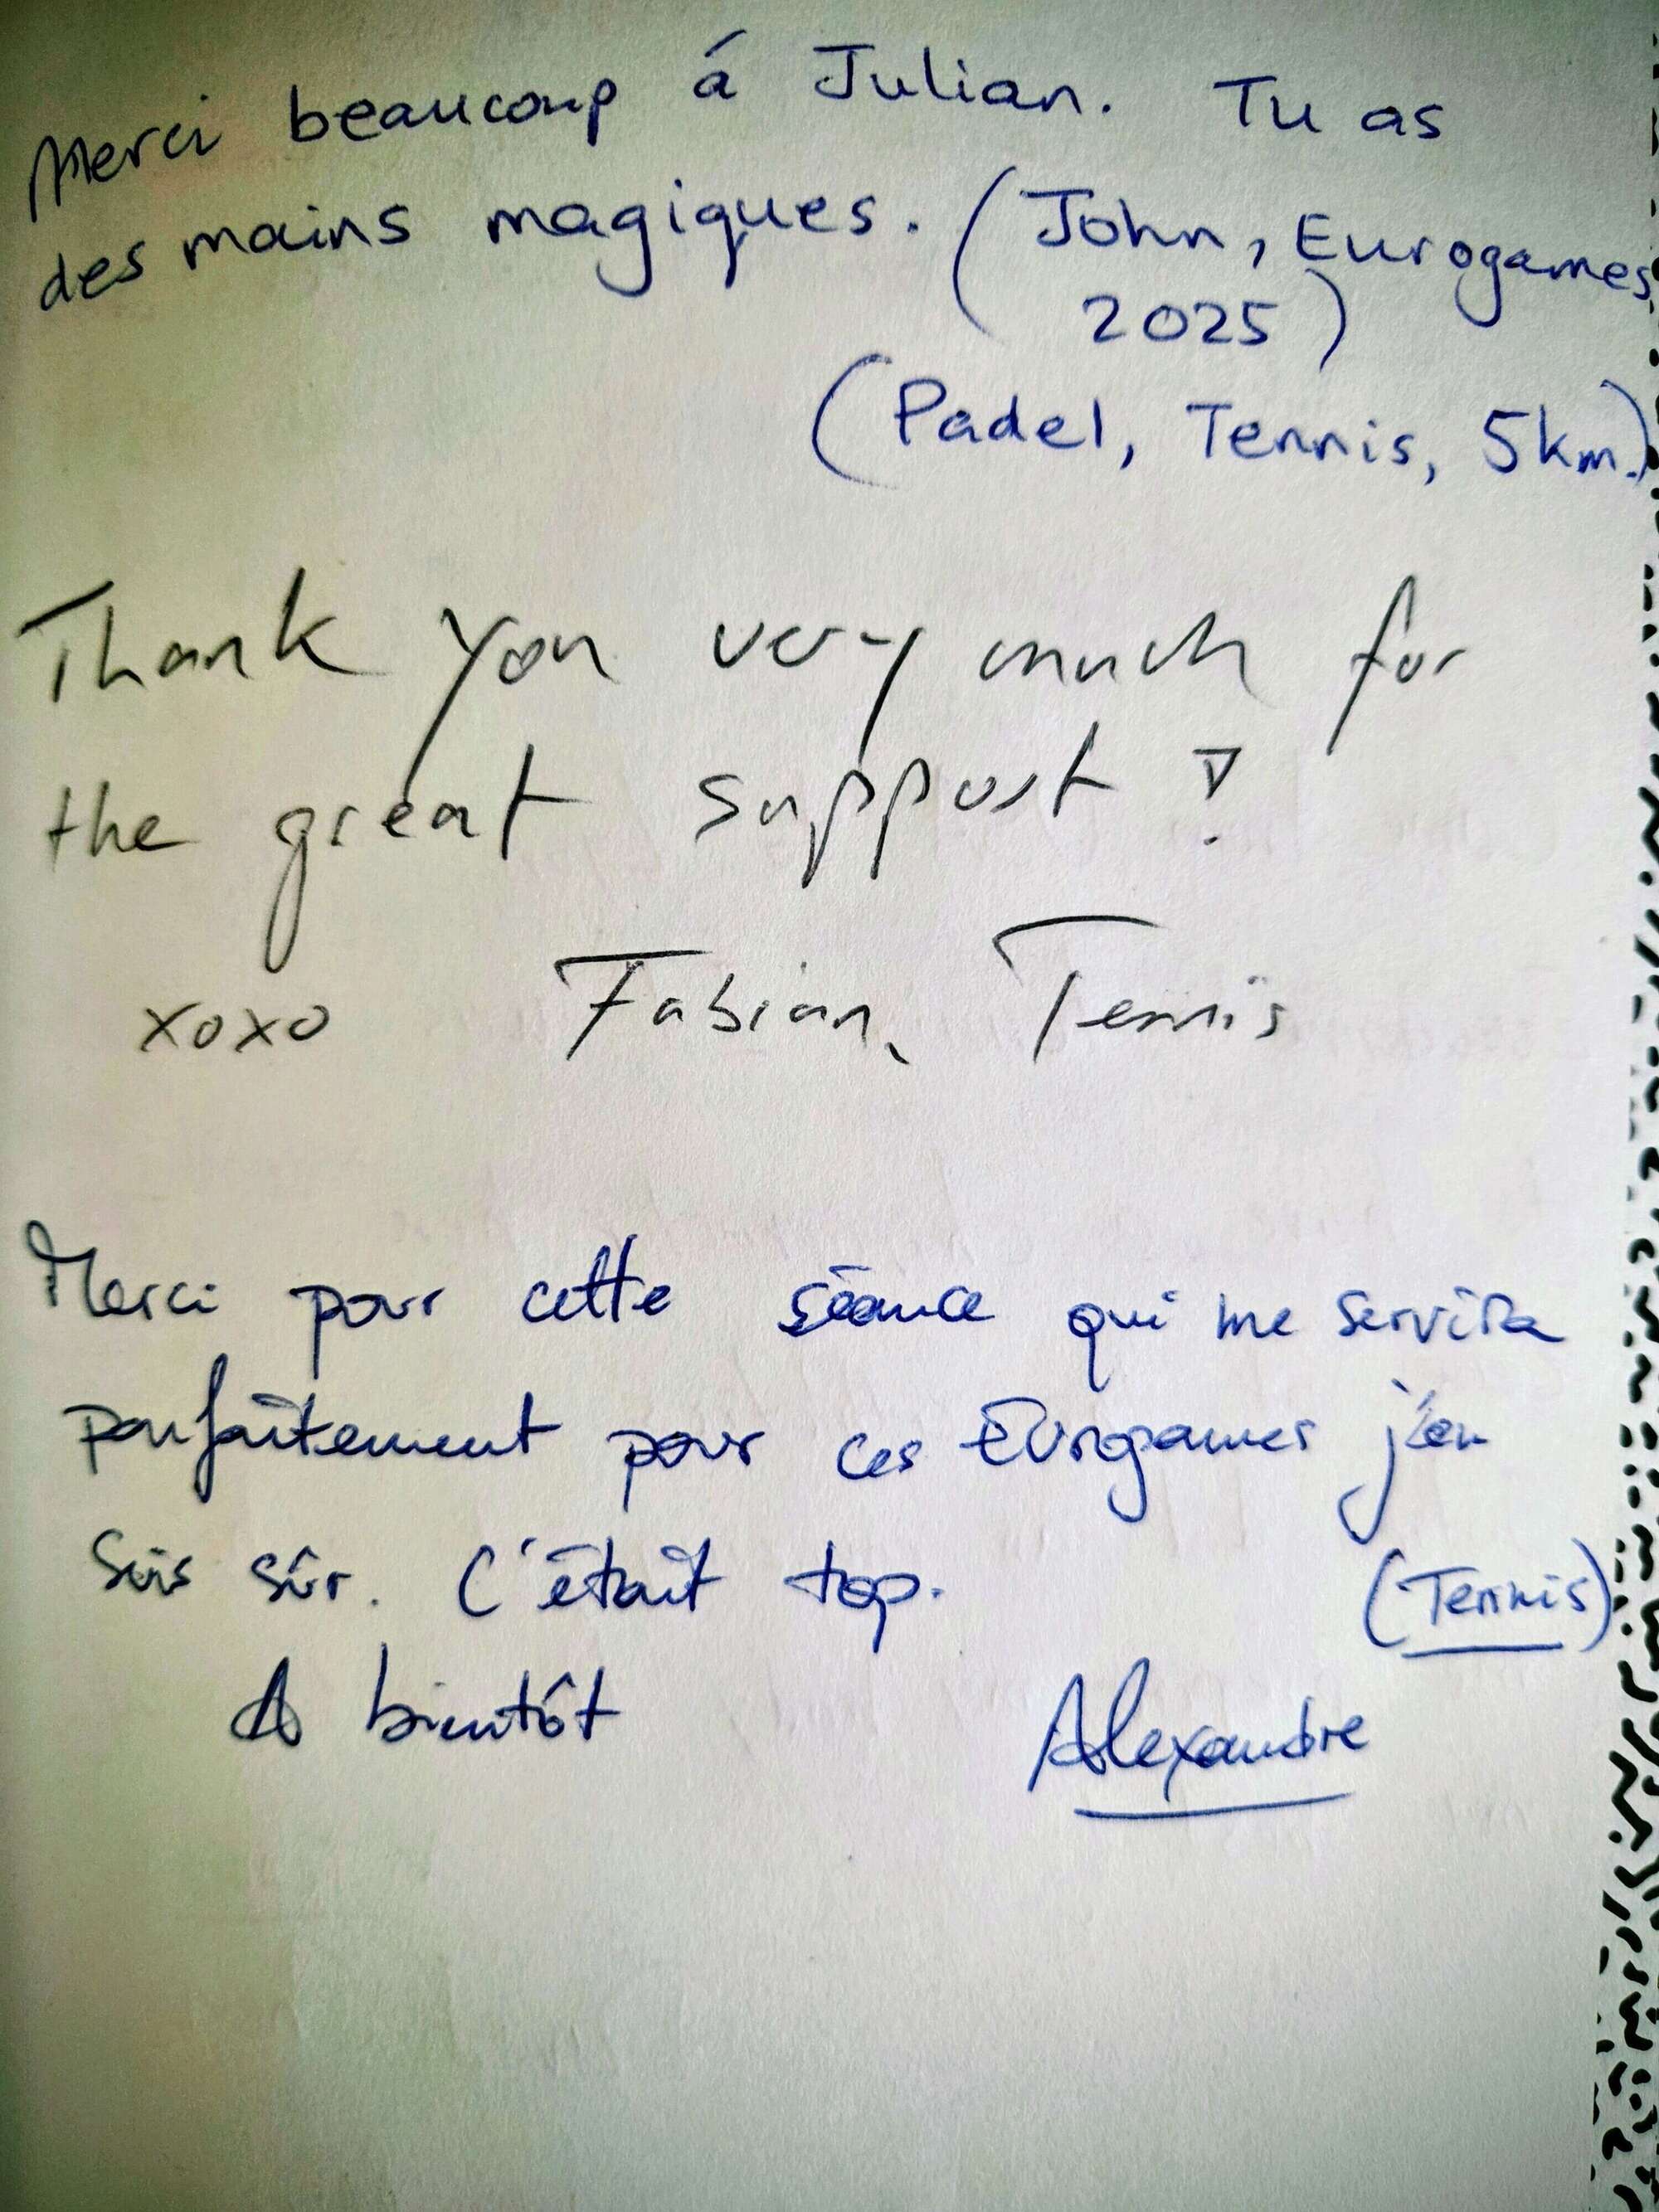 Merci beaucoup á Julian. Tu as
des mains magiques. (John, Eurogames
2025)
(Padel, Tennis, 5km.)
Thank you very much for
the great support !
xoxo Fabian, Tennis
Merci pour cette séance qui me servira
parfaitement pour ces Eurogames j'en
suis sûr. C'était top. (Tennis)
A bientôt Alexandre